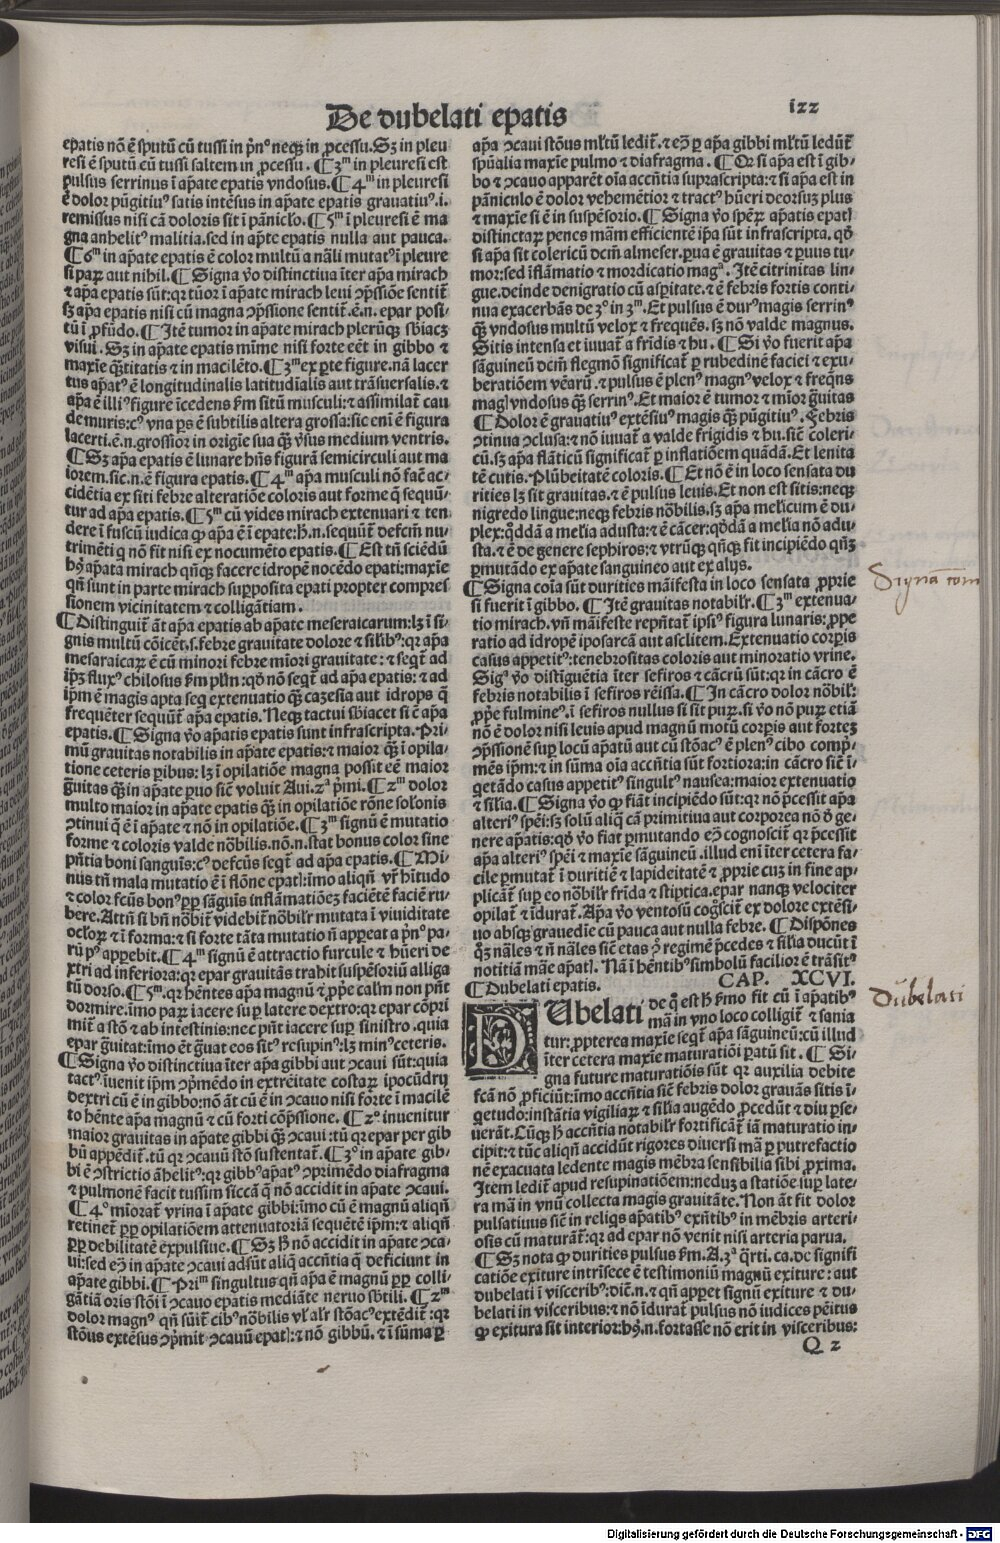 De dubelati epatis
izz
epatis nō ē sputū cū tussi in p̄nº neqꝫ in ꝓcessu. Sꝫ in pleu
resi ē sputū cū tussi saltem in ꝓcessu. ¶ 3ᵐ in pleuresi est
pulsus serrinus ī ap̄ate epatis vndosus. ¶ 4ᵐ in pleuresi
ē dolor pūgitiuꝰ satis intēsus in ap̄ate epatis grauatiuꝰ .i.
remissus nisi cā doloris sit ī pāniclo. ¶ 5ᵐ ī pleuresi ē ma
gna anhelitꝰ malitia. sed in ap̄te epatis nulla aut pauca.
¶ 6ᵐ in ap̄ate epatis ē color multū a nāli mutatꝰ ī pleure
si paꝝ aut nihil. ¶ Signa v̄o distinctiua īter ap̄a mirach
⁊ ap̄a epatis sūt: qꝛ tūor ī ap̄ate mirach leui ꝯp̄ssiōe sentit̄
sꝫ ap̄a epatis nisi cū magna ꝯp̄ssione sentit̄. ē .n. epar posi-
tū ī ꝓfūdo. ¶ Itē tumor in ap̄ate mirach pleꝛūqꝫ sb̄iacꝫ
visui. Sꝫ in ap̄ate epatis mīme nisi forte eēt in gibbo ⁊
maxīe q̄ꝫtitatis ⁊ in macilēto. ¶ 3ᵐ ex ꝑte figure. nā lacer
tus apatꝰ ē longitudinalis latitudīalis aut trāsuersalis. ⁊
ap̄a ē illiꝰ figure īcedens ẜm sitū musculi: ⁊ assimilat̄ cau
de muris: cꝰ vna ps ē subtilis altera grossa: sic eni ē figura
lacerti. ē .n. grossior in origīe sua q̄ꝫ v̄sus medium ventris.
¶ Sꝫ ap̄a epatis ē lunare hn̄s figurā semicirculi aut ma
iorem. sic .n. ē figura epatis. ¶ 4ᵐ apa musculi nō fac̄ ac-
cidētia ex siti febre alteratiōe coloris aut forme q̄ sequū-
tur ad ap̄a epatis. ¶ 5ᵐ cū vides mirach extenuari ⁊ ten
dere ī fuscū iudica ꝙ apa ē ī epate: h̄ .n. sequūt̄ defcm̄ nu
trimēti q̄ nō fit nisi ex nocumēto epatis. ¶ Est tn̄ sciēdū
apata mirach qn̄qꝫ facere idropē nocēdo epati: maxīe
qn̄ sunt in parte mirach supposita epati propter compres
sionem vicinitatem ⁊ colligātiam.
¶ Distinguit̄ āt apa epatis ab ap̄ate meseraicarum: lꝫ ī si-
gnis multū cōicēt .s. febre grauitate dolore ⁊ silibꝰ: qꝛ apa
mesaraicaꝝ ē cū minori febre miori grauitate: ⁊ seqt̄ ad
fluxꝰ chilosus ẜm plm: qð nō seqt̄ ad apa epatis: ⁊ ad
ip̄m ē magis apta seq extenuatio q̄ꝫ cazesia aut idrops q̄
frequēter sequūt̄ apa epatis. Neqꝫ tactui sb̄iacet si ē apa
epatis. ¶ Signa v̄o apatis epatis sunt infrascripta. Pri-
mū grauitas notabilis in apate epatis: ⁊ maior q̄ꝫ ī opila-
tione ceteris ꝑibus: lꝫ ī opilatiōe magna possit eē maior
ḡuitas q̄ꝫ in apate ꝑuo siē voluit Aui. 2ª pmi. ¶ 2ᵐ dolor
multo maior in apate epatis q̄ꝫ in opilatiōe rōne solonis
ꝯtinui q̄ ē ī apate ⁊ nō in opilatiōe. ¶ 3ᵐ signū ē mutatio
forme ⁊ coloris valde nōbilis. nō .n. stat bonus color sine
pn̄tia boni sanguīs: cꝰ defcūs seqt̄ ad apa epatis. ¶ Mi-
nus tn̄ mala mutatio ē ī flōne
⁊ color fcūs bonꝰ ꝓp̄ sāguīs inflāmatiōeꝫ faciētē faciē ru-
bere. Attn̄ si bn̄ nōbit̄ videbit̄ nōbilr̄ mutata ī viuiditate
⁊ ī forma: ⁊ si forte tāta mutatio nō appeat a pnº pa-
rū pꝰ appebit. ¶ 4ᵐ signū ē attractio furcule ⁊ hūeri de
xtri ad inferiora: qꝛ epar grauitās trahit suspēsoriū alliga
tū dorso. ¶ 5ᵐ. qꝛ hētes apa magnū ⁊ calm̄ non pn̄t
dormire. īmo paꝝ iacere suꝑ latere dextro: qꝛ epar cōpri
mit̄ a stō ⁊ ab intestinis: nec pn̄t iacere suꝑ sinistro. quia
epar ḡuitat: īmo ēt ḡuat eos sitꝰ resupinꝰ: lꝫ minꝰ ceteris.
¶ Signa v̄o distinctiua īter apa gibbi aut ꝯcaui sūt: quia
tactꝰ īuenit ip̄m ꝯpmēdo in extreitate costaꝝ ipocūdrij
dextri cū ē in gibbo: nō āt cū ē in ꝯcauo nisi forte ī macilē
to hēnte apa magnū ⁊ cū forti cōpssione. ¶ 2º inuenitur
maior grauitas in apate gibbi q̄ꝫ ꝯcaui: tū qꝛ epar per gib
bū appēdit̄. tū qꝛ ꝯcauū stō sustentat̄. ¶ 3º in apate gib-
bi ē ꝯstrictio āhelitꝰ: qꝛ gibbꝰ apatꝰ ꝯprimēdo diafragma
⁊ pulmonē facit tussim siccā q̄ nō accidit in apate ꝯcaui.
¶ 4º miorat̄ vrina ī apate gibbi: īmo cū ē magnū aliqn̄
retinet̄ ꝓp̄ opilatiōem attenuatoriā sequētē ip̄m: ⁊ aliqn̄
ꝓp̄ debilitatē expulsiue. ¶ Sꝫ h̄ nō accidit in apate ꝯca-
ui: sed eꝰ in apate ꝯcaui adsūt aliq̄ accn̄tia q̄ deficiunt in
apate gibbi. ¶ Priᵐ singultus qn̄ apa ē magnū ꝓp̄ colli-
gātiā oris stōi ī ꝯcauo epatis mediāte neruo sbtili. ¶ 2ᵐ
dolor magnꝰ qn̄ sūit̄ cibꝰ nōbilis vl̄ alr̄ stōacꝰ extēdit̄: qꝛ
stōus extēsus ꝯpmit ꝯcauū epat: ⁊ nō gibbū. ⁊ ī sūma ꝑ
apa ꝯcaui stōus ml̄tū ledit̄. ⁊ eꝰ ꝑ apa gibbi ml̄tū ledūt̄
spūalia maxīe pulmo ⁊ diafragma. ¶ Qꝛ si apa est ī gib-
bo ⁊ ꝯcauo apparēt oīa accn̄tia suprascripta: ⁊ si apa est in
pāniculo ē dolor vehemētior ⁊ tractꝰ hūeri deorsuꝫ plus
⁊ maxīe si ē in suspēsorio. ¶ Signa v̄o apatis
distinctaꝝ penes mām efficientē ip̄a sūt infrascripta. qð
si apa sit colericū dcm̄ almeser. ꝑua ē grauitas ⁊ ꝑuus tu-
mor: sed īflāmatio ⁊ mordicatio magª. Itē citrinitas lin-
gue. deinde denigratio cū aspitate. ⁊ ē febris fortis conti-
nua exacerbās de 3º in 3ᵐ. Et pulsus ē durꝰ magis serrinꝰ
q̄ꝫ vndosus multū velox ⁊ frequēs. sꝫ nō valde magnus.
Sitis intensa et iuuat̄ a fridis ⁊ hu. ¶ Si v̄o fuerit apa
sāguineū dcm̄ flegmō significat̄ ꝑ rubedinē faciei ⁊ exu-
beratiōem vēarū. ⁊ pulsus ē plenꝰ magnꝰ velox ⁊ freqns
magꝭ vndosus q̄ꝫ serrinꝰ. Et maior ē tumor ⁊ mior ḡuitas
¶ Dolor ē grauatiuꝰ extēsiuꝰ magis q̄ꝫ pūgitiuꝰ. Febris
ꝯtinua ꝯclusa: ⁊ nō iuuat̄ a valde frigidis ⁊ hu. siē coleri-
cū. sꝫ apa flāticū significat̄ ꝑ inflatiōem quādā. Et lenita
tē cutis. Plūbeitatē coloris. ¶ Et nō ē in loco sensata du
rities lꝫ sit grauitas. ⁊ ē pulsus leuis. Et non est sitis: neqꝫ
nigredo lingue: neqꝫ febris nōbilis. sꝫ apa melicum ē du-
plex: qðdā a melia adusta: ⁊ ē cācer: qðdā a melia nō adu-
sta. ⁊ ē de genere sephiros: ⁊ vtrūqꝫ qn̄qꝫ fit incipiēdo qn̄ꝫ
ꝑmutādo ex apate sanguineo aut ex alijs.
¶ Signa coīa sūt durities māifesta in loco sensata ꝓprie
si fuerit ī gibbo. ¶ Itē grauitas notabilr̄. ¶ 3ᵐ extenua-
tio mirach. vn̄ māifeste repn̄tat̄ ipsiꝰ figura lunaris: ꝓpe
ratio ad idropē iposarcā aut asclitem. Extenuatio corꝑis
casus appetitꝰ: tenebrositas coloris aut minoratio vrine.
Sigª v̄o distīguētia īter sefiros ⁊ cācrū sūt: qꝛ in cācro ē
febris notabilis ī sefiros rēissa. ¶ In cācro dolor nōbilr̄:
fulmineꝰ. ī sefiros nullus si sit puꝝ. si v̄o nō puꝝ etiā
nō ē dolor nisi leuis apud magnū motū corꝑis aut forteꝫ
ꝯpssionē suꝑ locū apatū aut cū stōacꝰ ē plenꝰ cibo comp-
mēs ip̄m: ⁊ in sūma oīa accn̄tia sūt fortiora: in cācro siē ī-
getādo casus appetitꝰ singultꝰ nausea: maior extenuatio
⁊ silia. ¶ Signa v̄o ꝙ fiāt incipiēdo sūt: qꝛ nō pcessit apa
alteriꝰ spēi: sꝫ solū aliq̄ cā primitiua aut corporea nō ð ge-
nere apatis: qð v̄o fiat ꝑmutando eꝰ cognoscit̄ qꝛ pcessit
apa alteriꝰ spēi ⁊ maxīe sāguineū. illud eni īter cetera fa-
cile ꝑmutat̄ ī duritiē ⁊ lapideitatē ⁊ ꝓprie cuꝫ in fine ap-
plicāt̄ suꝑ eo nōbilr̄ frida ⁊ stiptica. epar nanqꝫ velociter
opilat̄ ⁊ īdurat̄. Apa v̄o ventosū cogscit̄ ex dolore extēsi-
uo absqꝫ grauedīe cū pauca aut nulla febre. ¶ Dispōnes
nāles ⁊ n̄ nāles siē etas regimē pcedes ⁊ silia ducūt ī
notitiā māe apat. Nā ī hēntibꝰ simbolū facilior ē trāsitꝰ
CAP. XCVI.
¶ Dubelati epatis.
DUbelati de q̄ est h̄ ẜmo fit cū ī apatibꝰ
mā in vno loco colligit̄ ⁊ sania
tur: ꝓpterea maxīe seqt̄ apa sāguineū: cū illud
īter cetera maxīe maturatiōi ꝑatū sit. ¶ Si-
gna future maturatiōis sūt qꝛ auxilia debite
fcā nō ꝓficiūt: īmo accn̄tia siē febris dolor grauās sitis ī-
qetudo: instātia vigiliaꝝ ⁊ silia augēdo ꝓcedūt ⁊ diu pse-
uerāt. Cūqꝫ h̄ accn̄tia notabilr̄ fortificāt̄ iā maturatio in-
cipit: ⁊ tūc aliqn̄ accidūt rigores diuersi mā ꝑ putrefactio
nē exacuata ledente magis mēbra sensibilia sibi ꝓxima.
Item ledit̄ apud resupinatiōem: neduꝫ a statiōe suꝑ late-
ra mā in vnū collecta magis grauitāte. Non āt fit dolor
pulsatiuus siē in reliqs apatibꝰ exn̄tibꝰ in mēbris arteri-
osis cū maturāt̄: qꝛ ad epar nō venit nisi arteria parua.
¶ Sꝫ nota ꝙ durities pulsus ẜm .A. 2ª q̄rti. ca. de signifi
catiōe exiture intrīsece ē testimoniū magnū exiture: aut
dubelati ī visceribꝰ: dic̄ .n. ⁊ qn̄ appet signū exiture ⁊ du-
belati in visceribus: ⁊ nō īdurat̄ pulsus nō iudices pēitus
ꝙ exitura sit interior: .n. fortasse nō erit in visceribus:
Q 2
Signa com
Dubelati
Digitalisierung gefördert durch die Deutsche Forschungsgemeinschaft - DFG